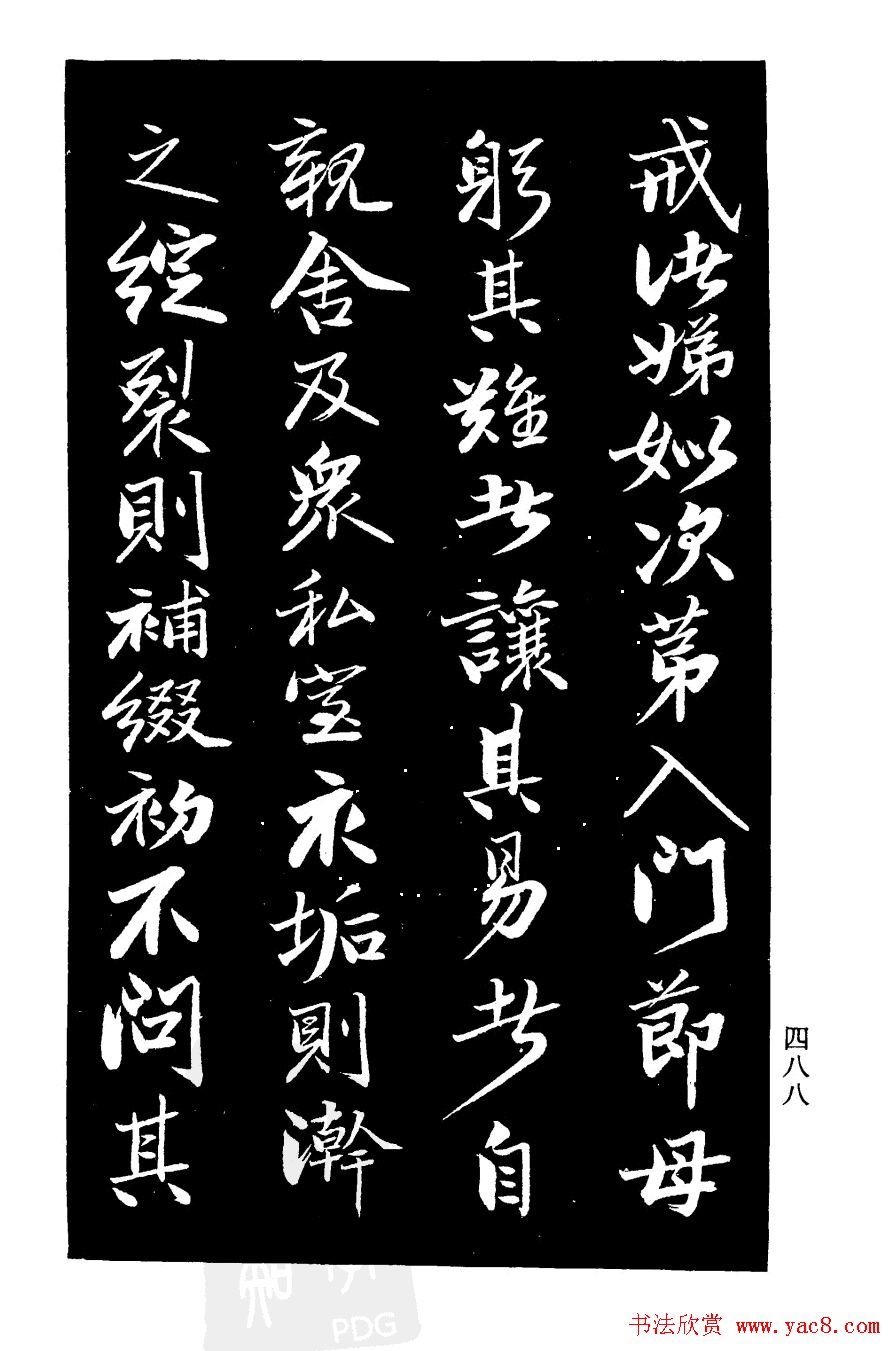 戒諸娣姒次第入門節母
躬其難者讓其易者自
親舍及衆私室衣垢則澣
之綻裂則補綴初不問其
四八八
PDG
书法欣赏 www.yac8.com